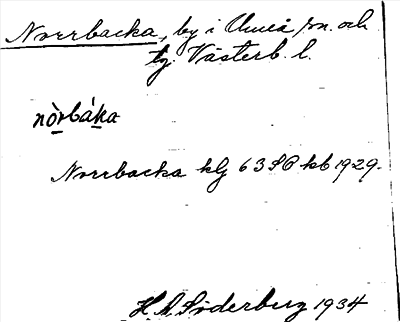 Norrbacka, by i Umeå sn. och
tg. Västerb. l.
nòrbáka
Norrbacka klg 63 SO kb 1929.
H. A. Söderberg 1934